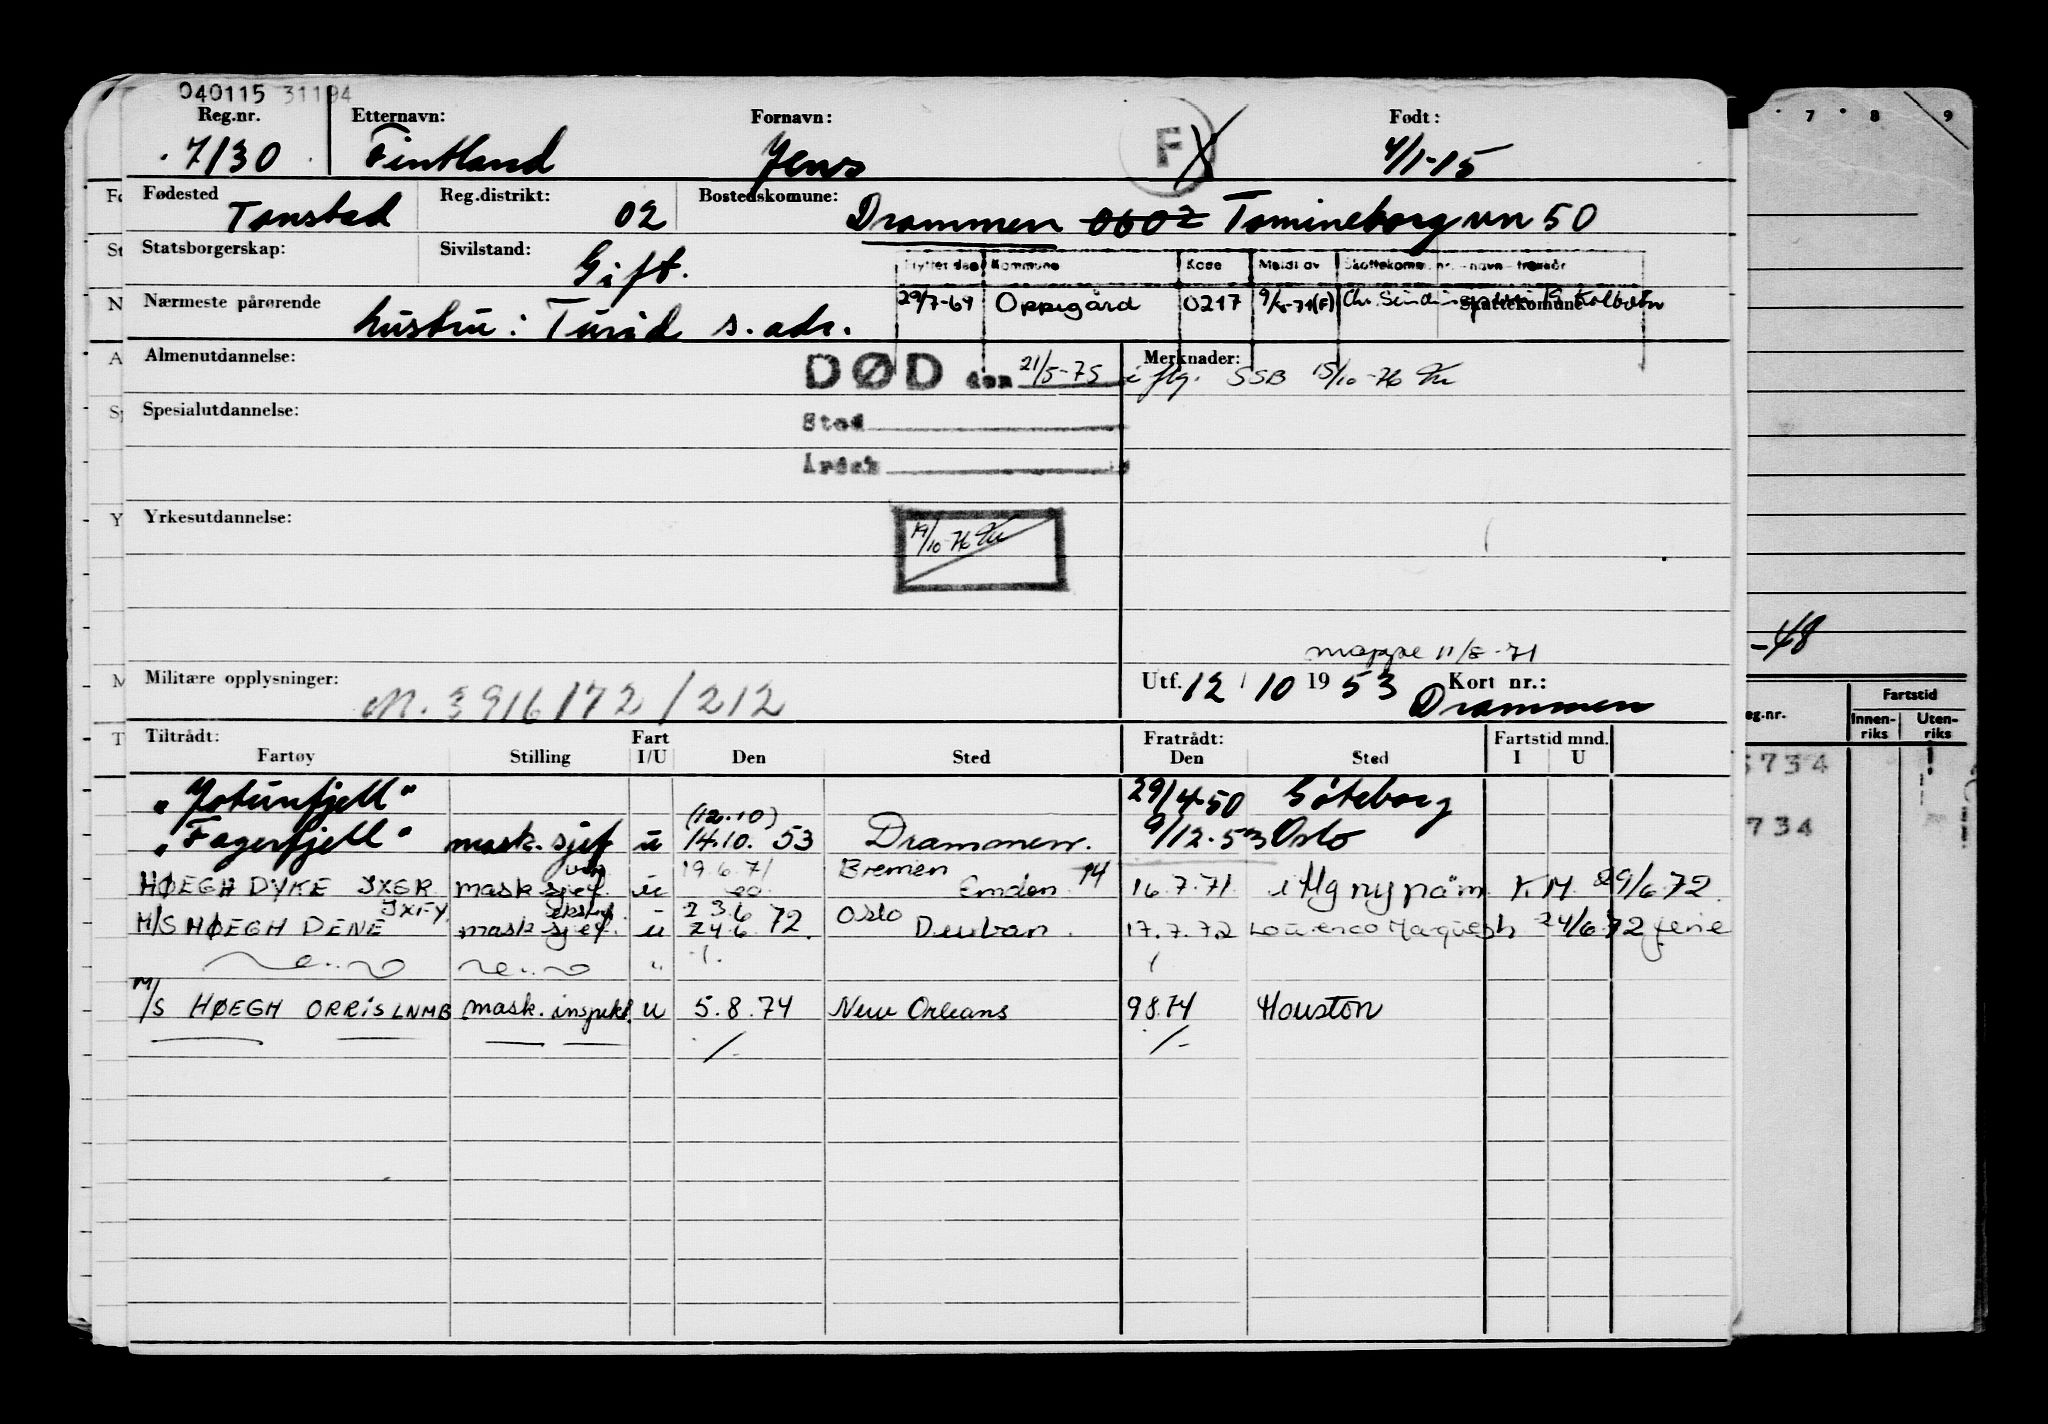 040115 31194
Reg.nr. Etternavn: Fornavn: F Født:
7130 Fintland Jens 4/1-15
Fødested Tonstad Reg.distrikt: 02 Bostedskomune: Drammen 0602 Tomineborgvn 50
Statsborgerskap: Sivilstand: Gift.
Flyttet dato Kommune Kode Meldt av Skattekomm. nr. - navn - trekkår
Nærmeste pårørende hustru: Turid s. adr. 29/7-69 Oppegård 0217 Skattekomune Kolbotn
Almenutdannelse: DØD den 21/5-75 Merknader: i flg. SSB 15/10-76
Spesialutdannelse: Sted
Årsak
Yrkesutdannelse: 19/10-76
mappe 11/8-71
Militære opplysninger: M. 3916172/212 Utf. 12/10 1953 Kort nr.:
Drammen
Tiltrådt: Fart Fratrådt: Fartstid mnd.
Fartøy Stilling I/U Den Sted Den Sted I U
"Jotunfjell" 29/4-50 Göteborg
(12.10)
"Fagerfjell" mask.sjef u 14.10. 53 Drammen. 9/12.53 Oslo
19.6.71 Bremen
HØEGH DYKE JXGR mask sjef. u Emden 16.7.71 i flg ny påm. K.M. 29/6.72.
JXFY 23.6 Oslo
M/S HØEGH DENE mask sjef. u 24.6.72. Durban. 17.7.72 24/6.72 ferie
M/S HØEGH ORRIS LNMB mask. inspekt. u 5.8.74 New Orleans 9.8.74 Houston
7 8 9
-48
eg.nr. Fartstid
Innenriks Utenriks
5734
734